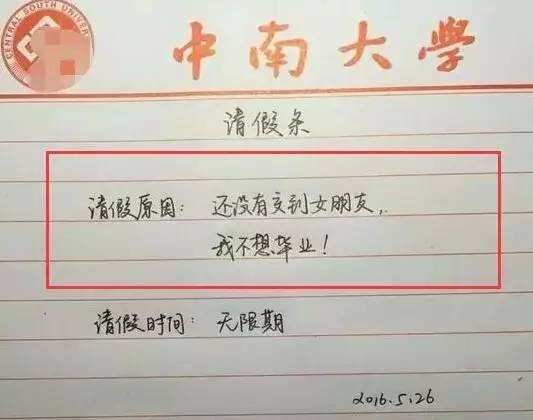 CENTRAL SOUTH UNIVER
中南大学
请假条
请假原因：还没有交到女朋友，
我不想毕业！
请假时间：无限期
2016.5.26